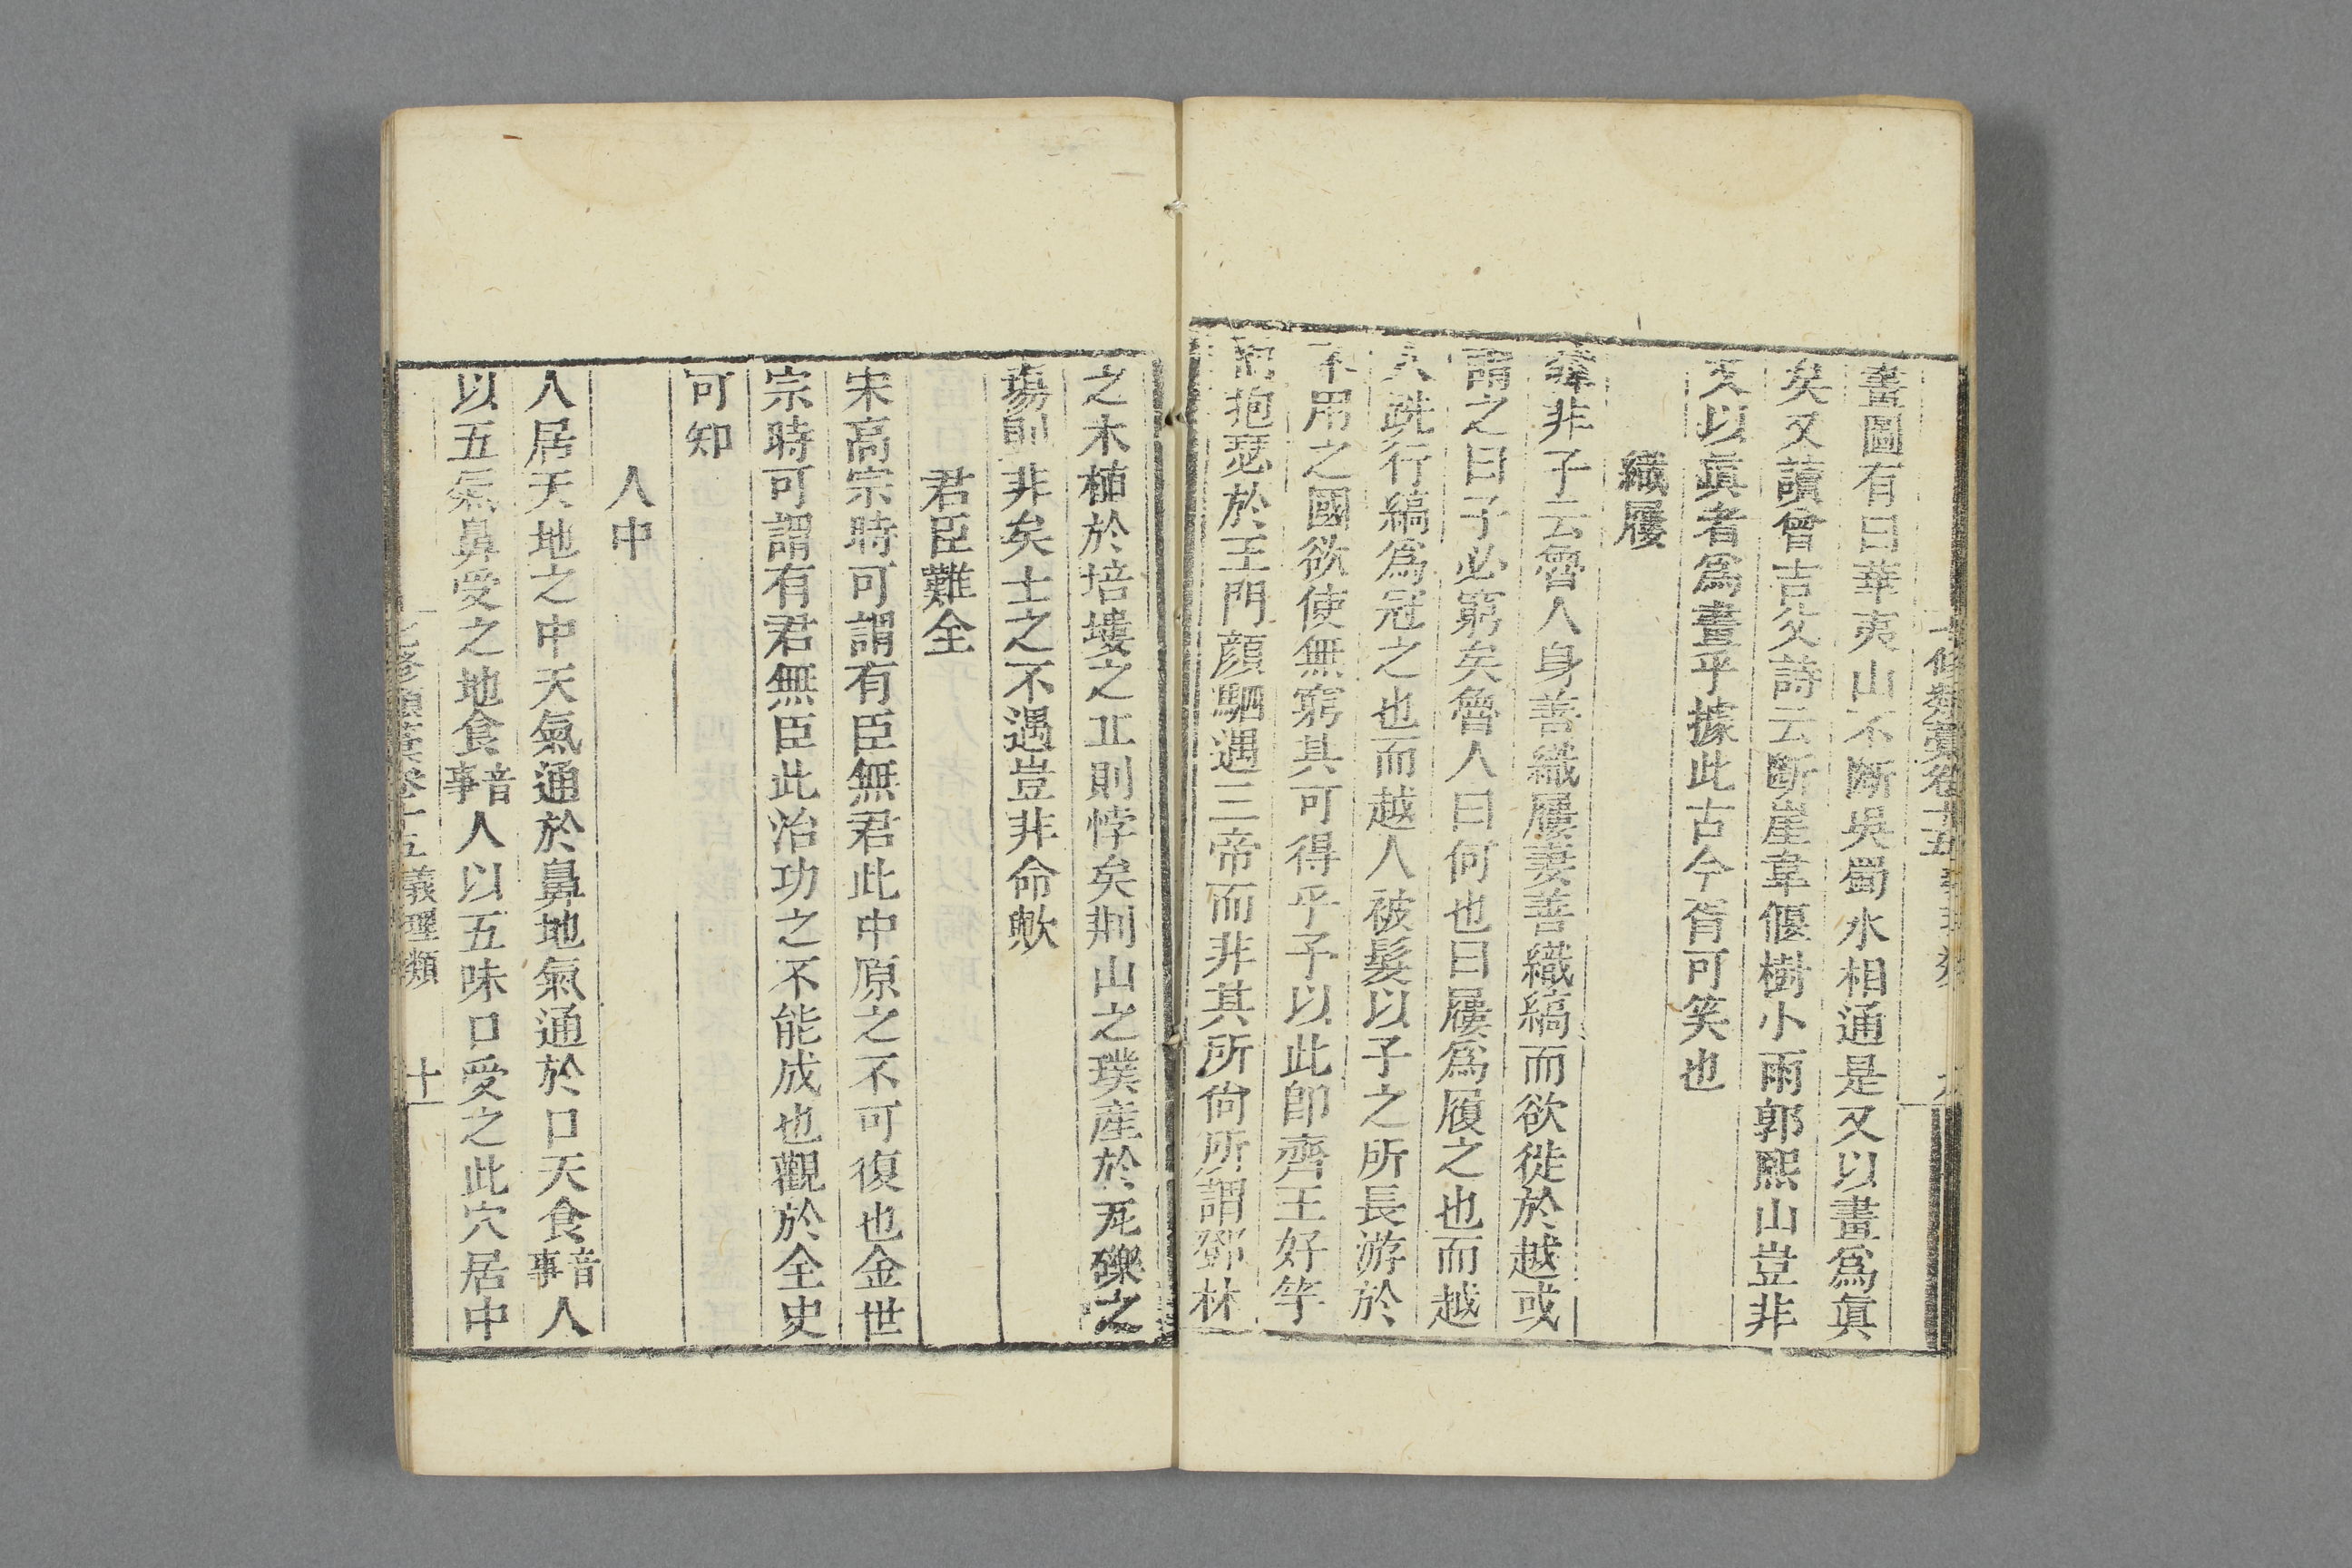 畫圖有曰華夷山不斷吳蜀水相通是又以畫爲眞
矣又讀曾吉父詩云斷崖韋偃樹小雨郭熙山豈非
又以眞者爲畫乎據此古今胥可笑也
織屨
韓非子云魯人身善織屨妻善織縞而欲徙於越或
謂之曰子必窮矣魯人曰何也曰屨爲履之也而越
人跣行縞爲冠之也而越人被髮以子之所長游於
不用之國欲使無窮其可得乎予以此卽齊王好竽
抱瑟於王門顏駟遇三帝而非其所尙所謂鄧林
七修類藁卷十五 義理類 九
之木植於培塿之丘則悖矣荆山之璞產於瓦礫之
場則非矣士之不遇豈非命歟
君臣難全
宋高宗時可謂有臣無君此中原之不可復也金世
宗時可謂有君無臣此治功之不能成也觀於全史
可知
人中
人居天地之中天氣通於鼻地氣通於口天食音事人
以五氣鼻受之地食音事人以五味口受之此穴居中
七修類藁卷十五 義理類 十